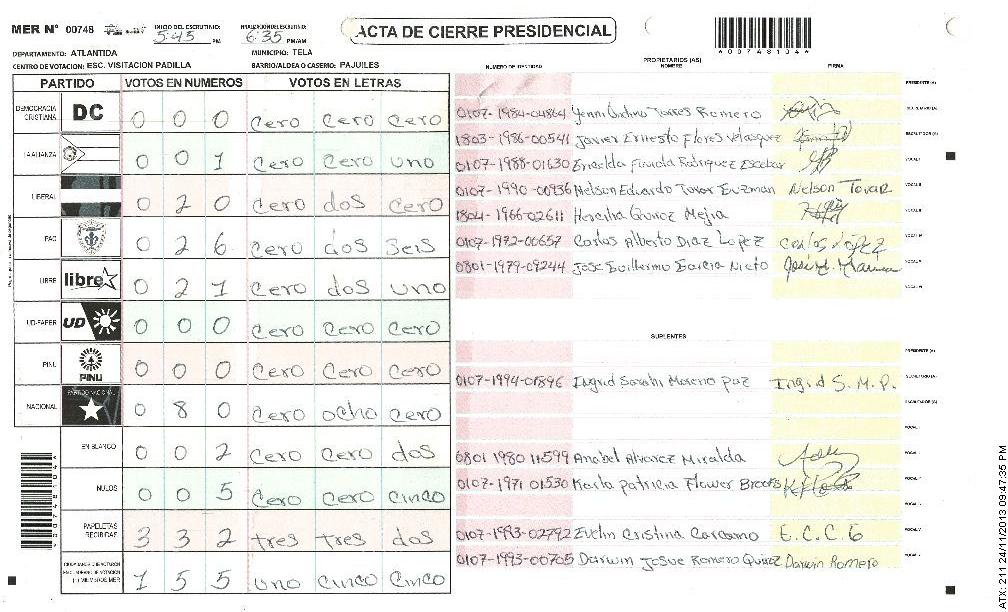 MER N° 00748 INICIO DEL ESCRUTINIO: 5:45 PM FINALIZACION DEL ESCRUTINIO: 6:35 PM/AM
ACTA DE CIERRE PRESIDENCIAL
DEPARTAMENTO: ATLANTIDA MUNICIPIO: TELA
CENTRO DE VOTACION: ESC. VISITACION PADILLA BARRIO/ALDEA O CASERIO: PAJUILES
PARTIDO VOTOS EN NUMEROS VOTOS EN LETRAS
DEMOCRACIA CRISTIANA DC 0 0 0 cero cero cero
LA ALIANZA 0 0 1 cero cero uno
LIBERAL 0 2 0 cero dos cero
PAC 0 2 6 cero dos seis
LIBRE libre 0 2 1 cero dos uno
UD-FAPER UD 0 0 0 cero cero cero
PINU PINU 0 0 0 cero cero cero
NACIONAL PARTIDO NACIONAL 0 8 0 cero ocho cero
EN BLANCO 0 0 2 cero cero dos
NULOS 0 0 5 cero cero cinco
PAPELETAS RECIBIDAS 3 3 2 tres tres dos
1 5 5 uno cinco cinco
NUMERO DE IDENTIDAD PROPIETARIOS (AS) NOMBRE FIRMA
PRESIDENTE (A)
0107-1984-04864 Torres Romero SECRETARIO (A)
1803-1986-00541 Javier Ernesto Flores Velasquez ESCRUTADOR (A)
0107-1988-01630 Rodriguez Escobar VOCAL I
0107-1990-00936 Nelson Eduardo Tovar Guzman Nelson Tovar VOCAL II
1804-1966-02611 Mejia VOCAL III
0107-1972-00657 Carlos Alberto Diaz Lopez Carlos López VOCAL IV
0801-1979-09244 Jose Guillermo Garcia Nieto VOCAL V
SUPLENTES
PRESIDENTE (A)
0107-1994-01896 Ingrid Sarahi Moreno Paz Ingrid S. M. P. SECRETARIO (A)
ESCRUTADOR (A)
0801 1980 11599 Anabel Alvarez Miralda
0107-1971 01530 Karla Patricia Flower Brooks
0107-1993-02792 Evelin Cristina Carcamo E.C.C.G
0107-1993-00705 Darwin Josue Romero Quiroz Darwin Romero
ATX: 211 24/11/2013 09:47:35 PM